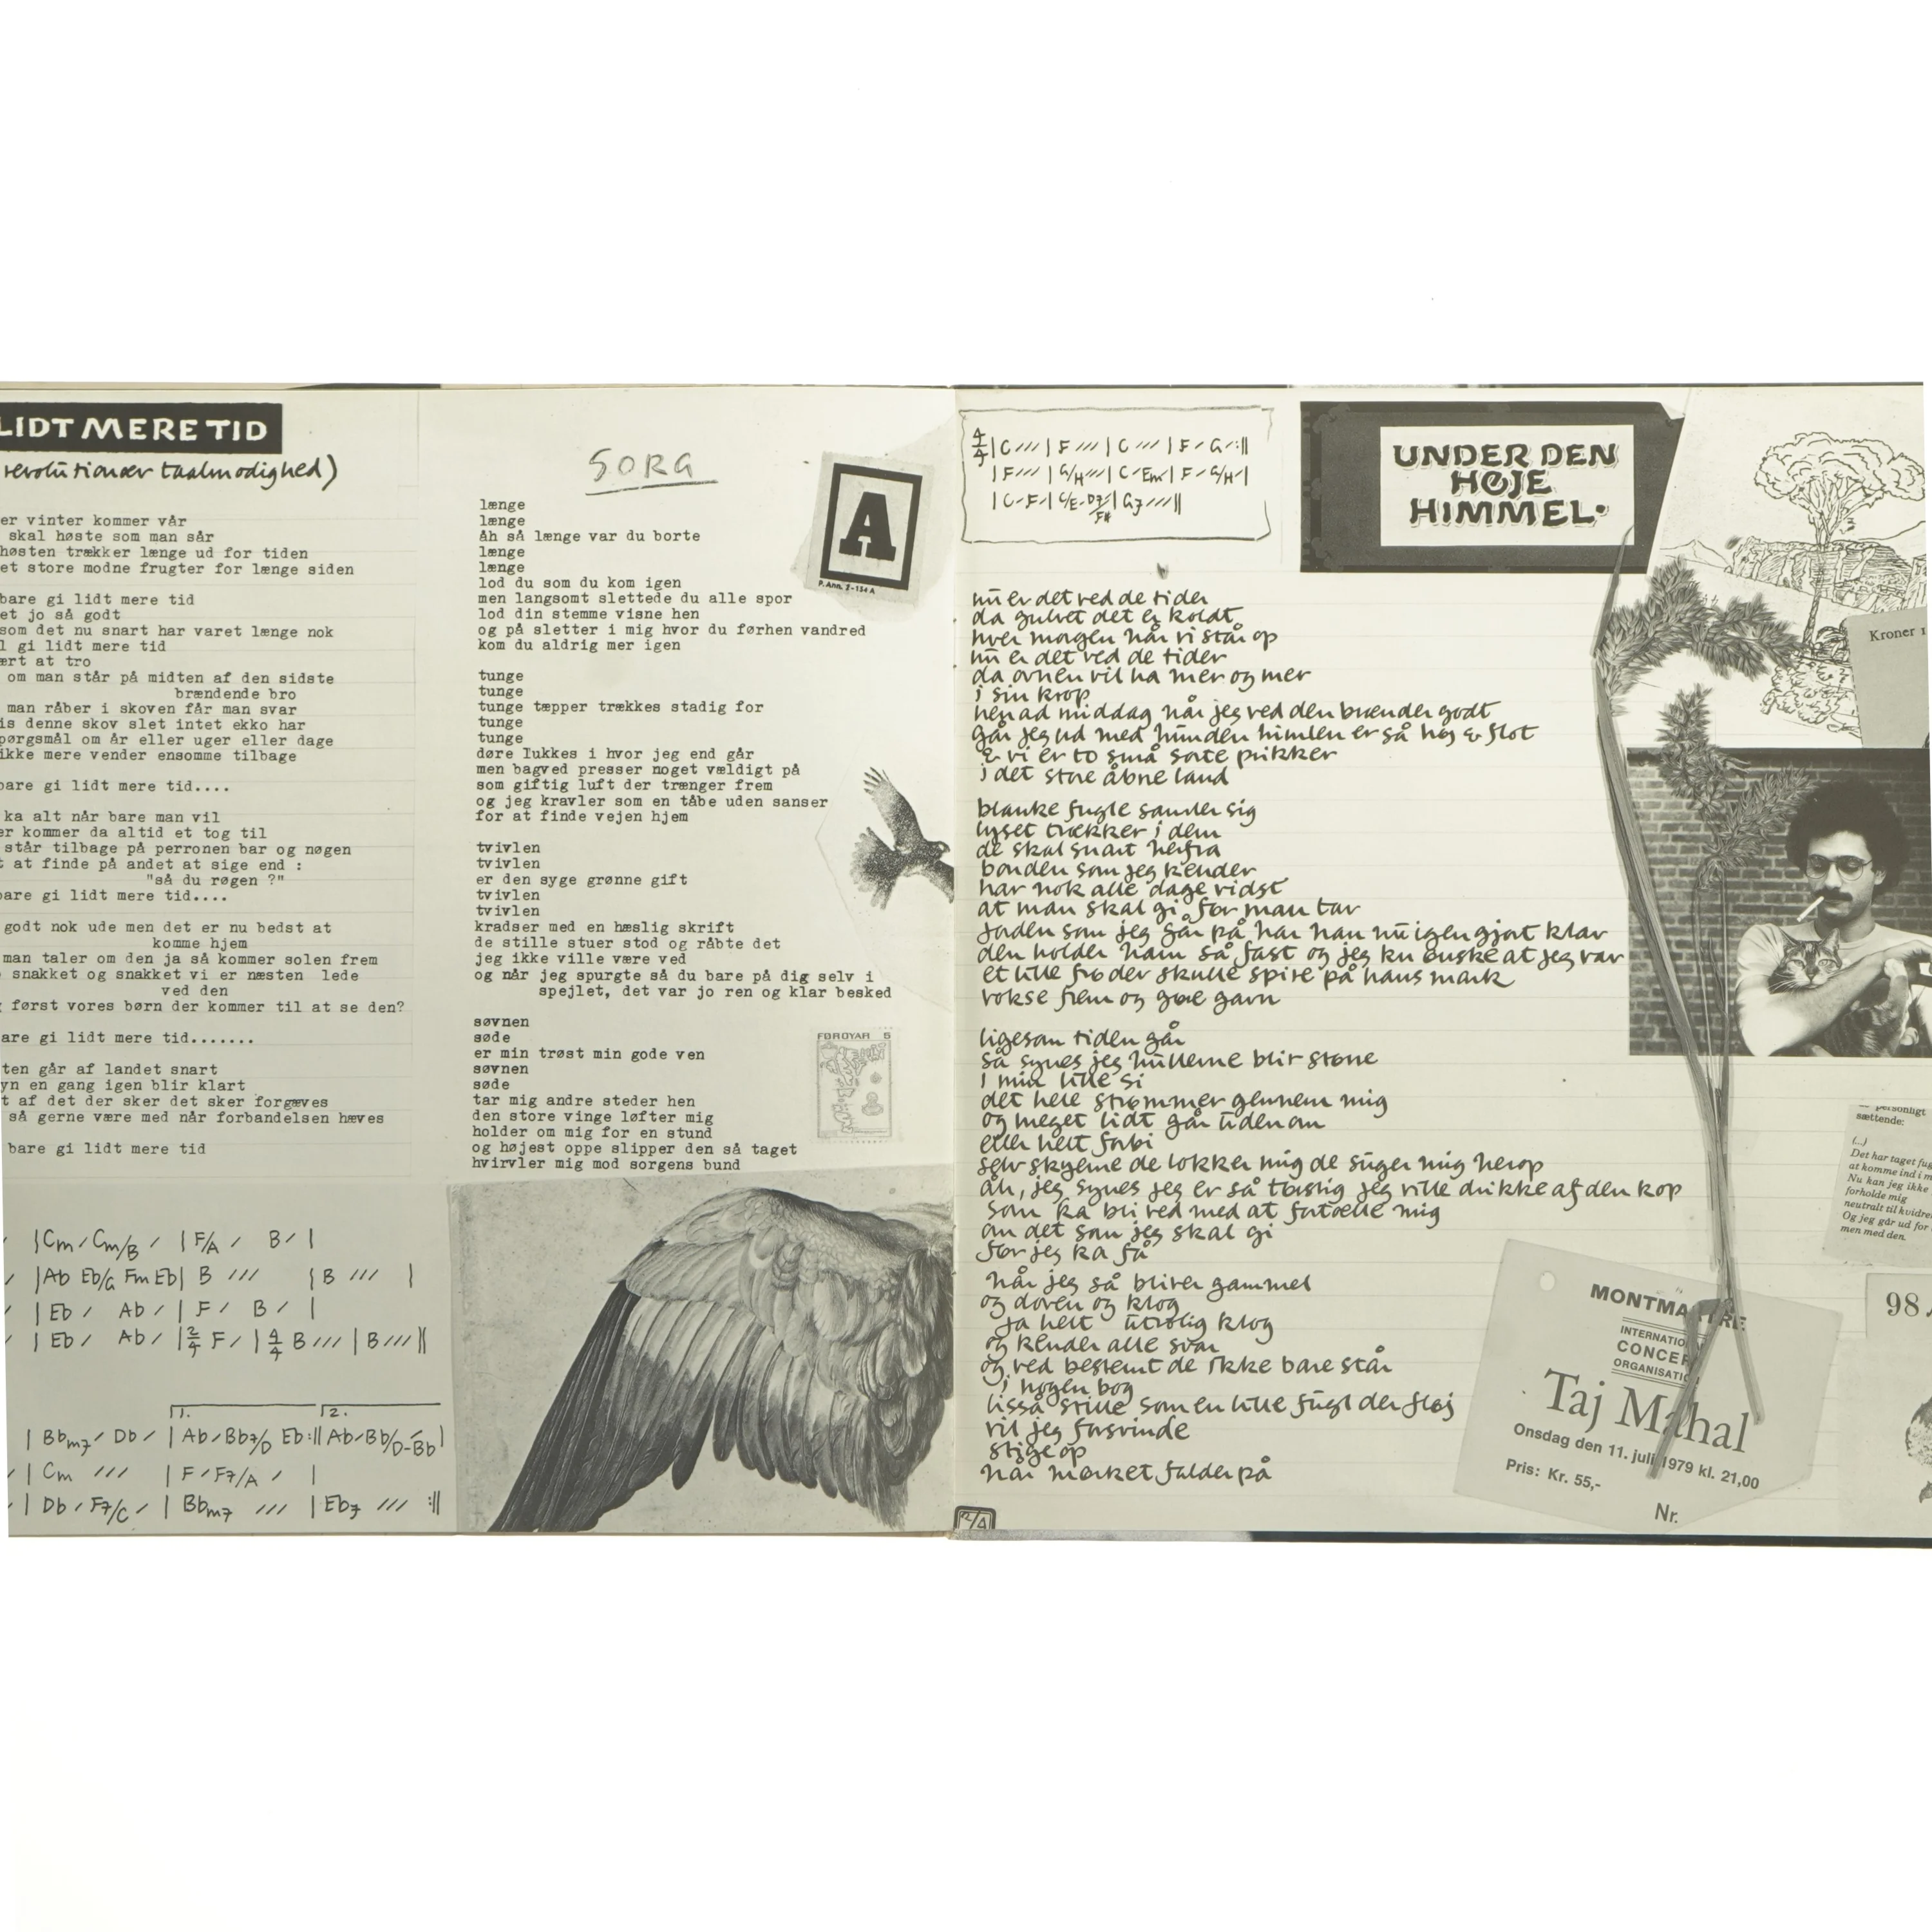 LIDT MERE TID
revolutionær taalmodighed)
er vinter kommer vår
skal høste som man sår
høsten trækker længe ud for tiden
et store modne frugter for længe siden
bare gi lidt mere tid
et jo så godt
som det nu snart har varet længe nok
l gi lidt mere tid
ært at tro
om man står på midten af den sidste
brændende bro
man råber i skoven får man svar
is denne skov slet intet ekko har
pørgsmål om år eller uger eller dage
ikke mere vender ensomme tilbage
bare gi lidt mere tid....
ka alt når bare man vil
er kommer da altid et tog til
står tilbage på perronen bar og nøgen
t at finde på andet at sige end :
"så du røgen ?"
bare gi lidt mere tid....
godt nok ude men det er nu bedst at
komme hjem
man taler om den ja så kommer solen frem
snakket og snakket vi er næsten lede
ved den
først vores børn der kommer til at se den?
are gi lidt mere tid.......
ten går af landet snart
yn en gang igen blir klart
t af det der sker det sker forgæves
så gerne være med når forbandelsen hæves
bare gi lidt mere tid
| Cm / Cm/B / | F/A / B / |
/ | Ab Eb/G Fm Eb | B /// | B /// |
/ | Eb / Ab / | F / B / |
/ | Eb / Ab / | 2/4 F / | 4/4 B /// | B /// ||
1. 2.
| Bbm7 / Db / | Ab / Bb7/D Eb :|| Ab / Bb/D - Bb |
/ | Cm /// | F / F7/A / |
/ | Db / F7/C / | Bbm7 /// | Eb7 /// :||
SORG
længe
længe
Åh så længe var du borte
længe
længe
lod du som du kom igen
men langsomt slettede du alle spor
lod din stemme visne hen
og på sletter i mig hvor du førhen vandred
kom du aldrig mer igen
tunge
tunge
tunge tæpper trækkes stadig for
tunge
tunge
døre lukkes i hvor jeg end går
men bagved presser noget vældigt på
som giftig luft der trænger frem
og jeg kravler som en tåbe uden sanser
for at finde vejen hjem
tvivlen
tvivlen
er den syge grønne gift
tvivlen
tvivlen
kradser med en hæslig skrift
de stille stuer stod og råbte det
jeg ikke ville være ved
og når jeg spurgte så du bare på dig selv i
spejlet, det var jo ren og klar besked
søvnen
søde
er min trøst min gode ven
søvnen
søde
tar mig andre steder hen
den store vinge løfter mig
holder om mig for en stund
og højest oppe slipper den så taget
hvirvler mig mod sorgens bund
A
P. Ann. 2-134 A
FØROYAR 5
4/4 | C /// | F /// | C /// | F / G / :||
| F /// | G/H /// | C / Em / | F / G/H / |
| C - F / | C/E - D7/F# | G7 /// ||
UNDER DEN
HØJE
HIMMEL.
nu er det ved de tider
da gulvet det er koldt
hver morgen når vi står op
nu er det ved de tider
da ovnen vil ha mer og mer
i sin krop
hen ad middag når jeg ved den brænder godt
går jeg ud med hunden himlen er så høj & flot
& vi er to små sorte prikker
i det store åbne land
blanke fugle samler sig
lyset trækker i dem
de skal snart herfra
bonden som jeg kender
har nok alle dage vidst
at man skal gi før man tar
Jorden som jeg går på har han nu igen gjort klar
den holder ham så fast og jeg ku ønske at jeg var
et lille frø der skulle spire på hans mark
vokse frem og gøre gavn
ligesom tiden går
så synes jeg hullerne blir større
i min lille si
det hele strømmer gennem mig
og meget lidt går udenom
eller helt forbi
selv skyerne de lokker mig de suger mig herop
åh, jeg synes jeg er så tørstig jeg ville drikke af den kop
som ka bli ved med at fortælle mig
om det som jeg skal gi
før jeg ka få
når jeg så bliver gammel
og doven og klog
ja helt utrolig klog
og kender alle svar
og ved bestemt de ikke bare står
i nogen bog
lisså stille som en lille fugl der fløj
vil jeg forsvinde
stige op
når mørket falder på
Kroner 1
personligt
sættende:
(...)
Det har taget fug
at komme ind i m
Nu kan jeg ikke
forholde mig
neutralt til kvidre
Og jeg går ud for
men med den.
98
MONTMARTRE
INTERNATIO
CONCER
ORGANISATI
Taj Mahal
Onsdag den 11. juli 1979 kl. 21,00
Pris: Kr. 55,-
Nr.